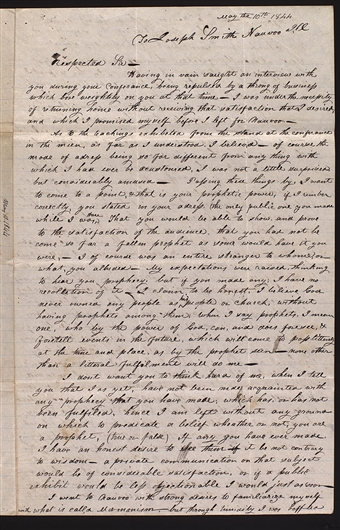 May the 10th 1844
To Joseph Smith Nauvoo Ill
Respected Sir—
Having in vain saught an interview with
you during your conferance, being repulsed by a throng of business
which bore weightily on you at that time,— I was under the necesity
of returning home without receiving that satisfaction that I desired,
and which I promised myself before I left for Nauvoo—
As to the teachings exhibited from the stand at the conferance
in the main, as far as I understood, I believed— of course the
mode of adress being so far different from any thing with
which I had ever be accustomed, I was not a little surprised
but considerably amused— Passing these things by, I want
to come to a point, that is your prophetic power, if I remember
correctly you stated in your adress the only public one you made
while I was there That you would be able to show and prove
to the satisfaction of the audience, that you had not be
come so far a fallen prophet as some would have it you
were,— I of course was an entire stranger to whome, or
what, you alluded— My expectations were raised, thinking
to hear you prophecy but if you made any, I have no
recollection of it— I want to be honest, I believe God
never owned any people as people or church, without
having prophets among them when I say prophets, I mean
one, who by the power of God, can, and does forsee, &
foretell events in the future, which will come to pass literaly
at the time and place, as by the prophet seen— none other
than a literal fulfillment will do me—
I dont want you to think hard of me, when I tell
you that I as yet, have not been made acquainted with
any prophecy that you have made, which has, or has not
been fulfilled, hence I am left without any ground
on which to predicate a belief whether or not, you are
a prophet, (true or false). If any you have ever made
I have an honest desire to see them if it be not contrary
to wisdom— a private communication on that subject
would be of considerable satisfaction, or if a public
exhibit would be less objectionable I would just as soon—
I went to Nauvoo with strong desires to familiarize myself
with what is called Mormonism, but through timidity I was baffled